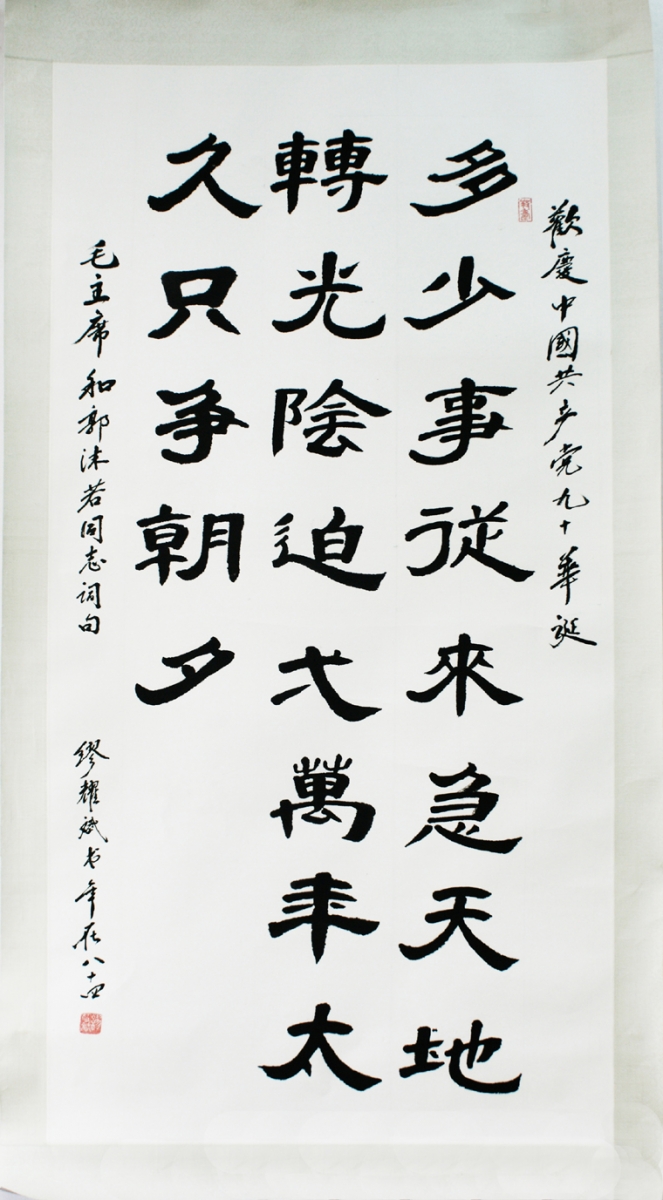 歡慶中國共产党九十華诞
多少事従來急天地
轉光陰迫弌萬年太
久只爭朝夕
毛主席和郭沫若同志词句
缪耀斌书年在八十四